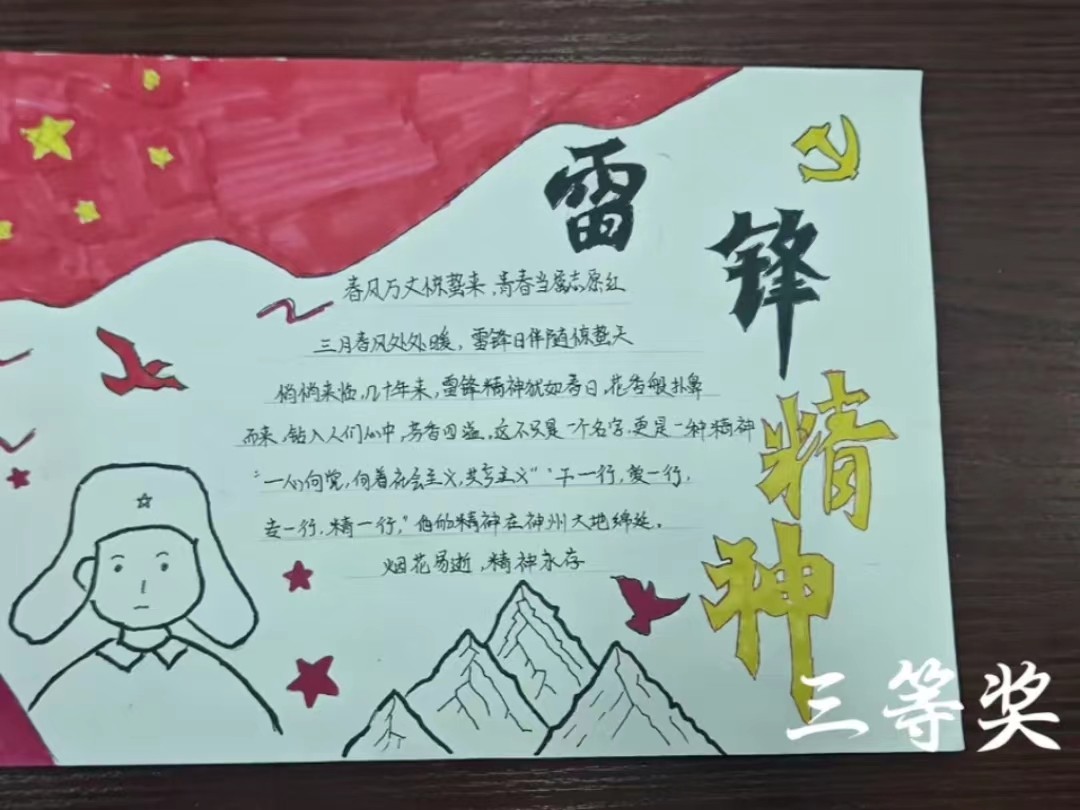 雷
锋
精
神
春风万丈惊蛰来，青春当染志原红
三月春风处处暖，雷锋日伴随惊蛰天
悄悄来临，几十年来，雷锋精神犹如春日，花香般扑鼻
而来，钻入人们心中，芳香四溢，这不只是一个名字，更是一种精神
“一心向党，向着社会主义，共产主义”“干一行，爱一行，
专一行，精一行，”他的精神在神州大地绵延。
烟花易逝，精神永存
三等奖